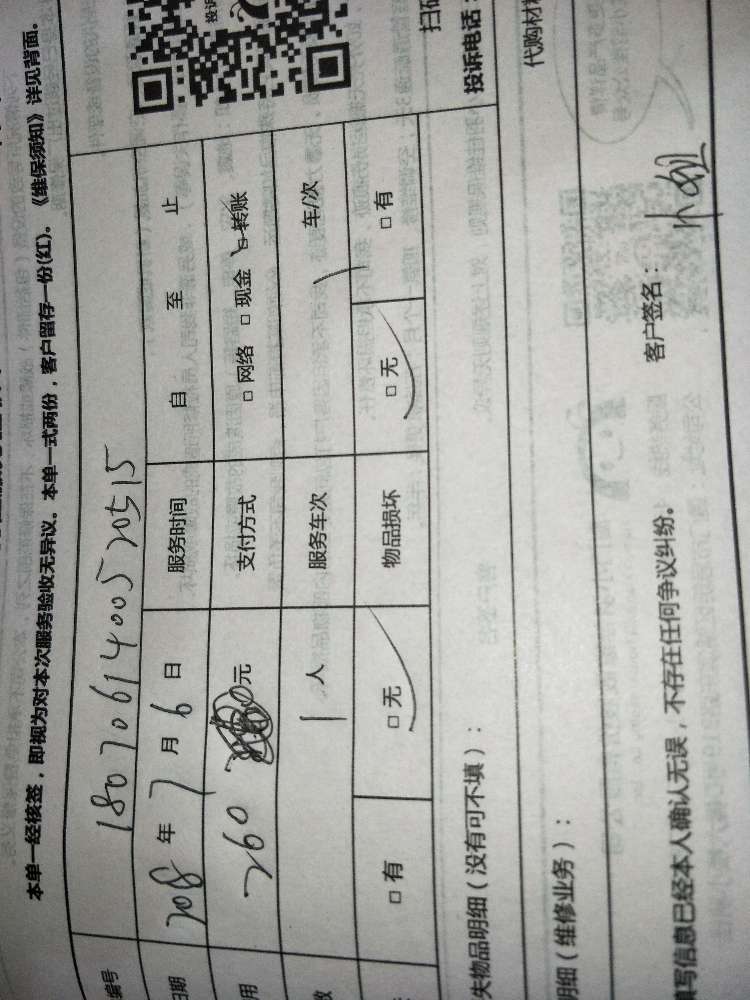 本单一经核签，即视为对本次服务验收无异议。本单一式两份，客户留存一份(红)。《维保须知》详见背面。
编号 1807061400520515
日期 2018 年 7 月 6 日 服务时间 自 至 止
用 260 元 支付方式 □ 网络 □ 现金 □ 转账
数 1 人 服务车次 1 车/次
□ 有 □ 无 物品损坏 □ 无 □ 有
投诉
扫码
投诉电话：
失物品明细（没有可不填）：
代购材料
明细（维修业务）：
填写信息已经本人确认无误，不存在任何争议纠纷。 客户签名：